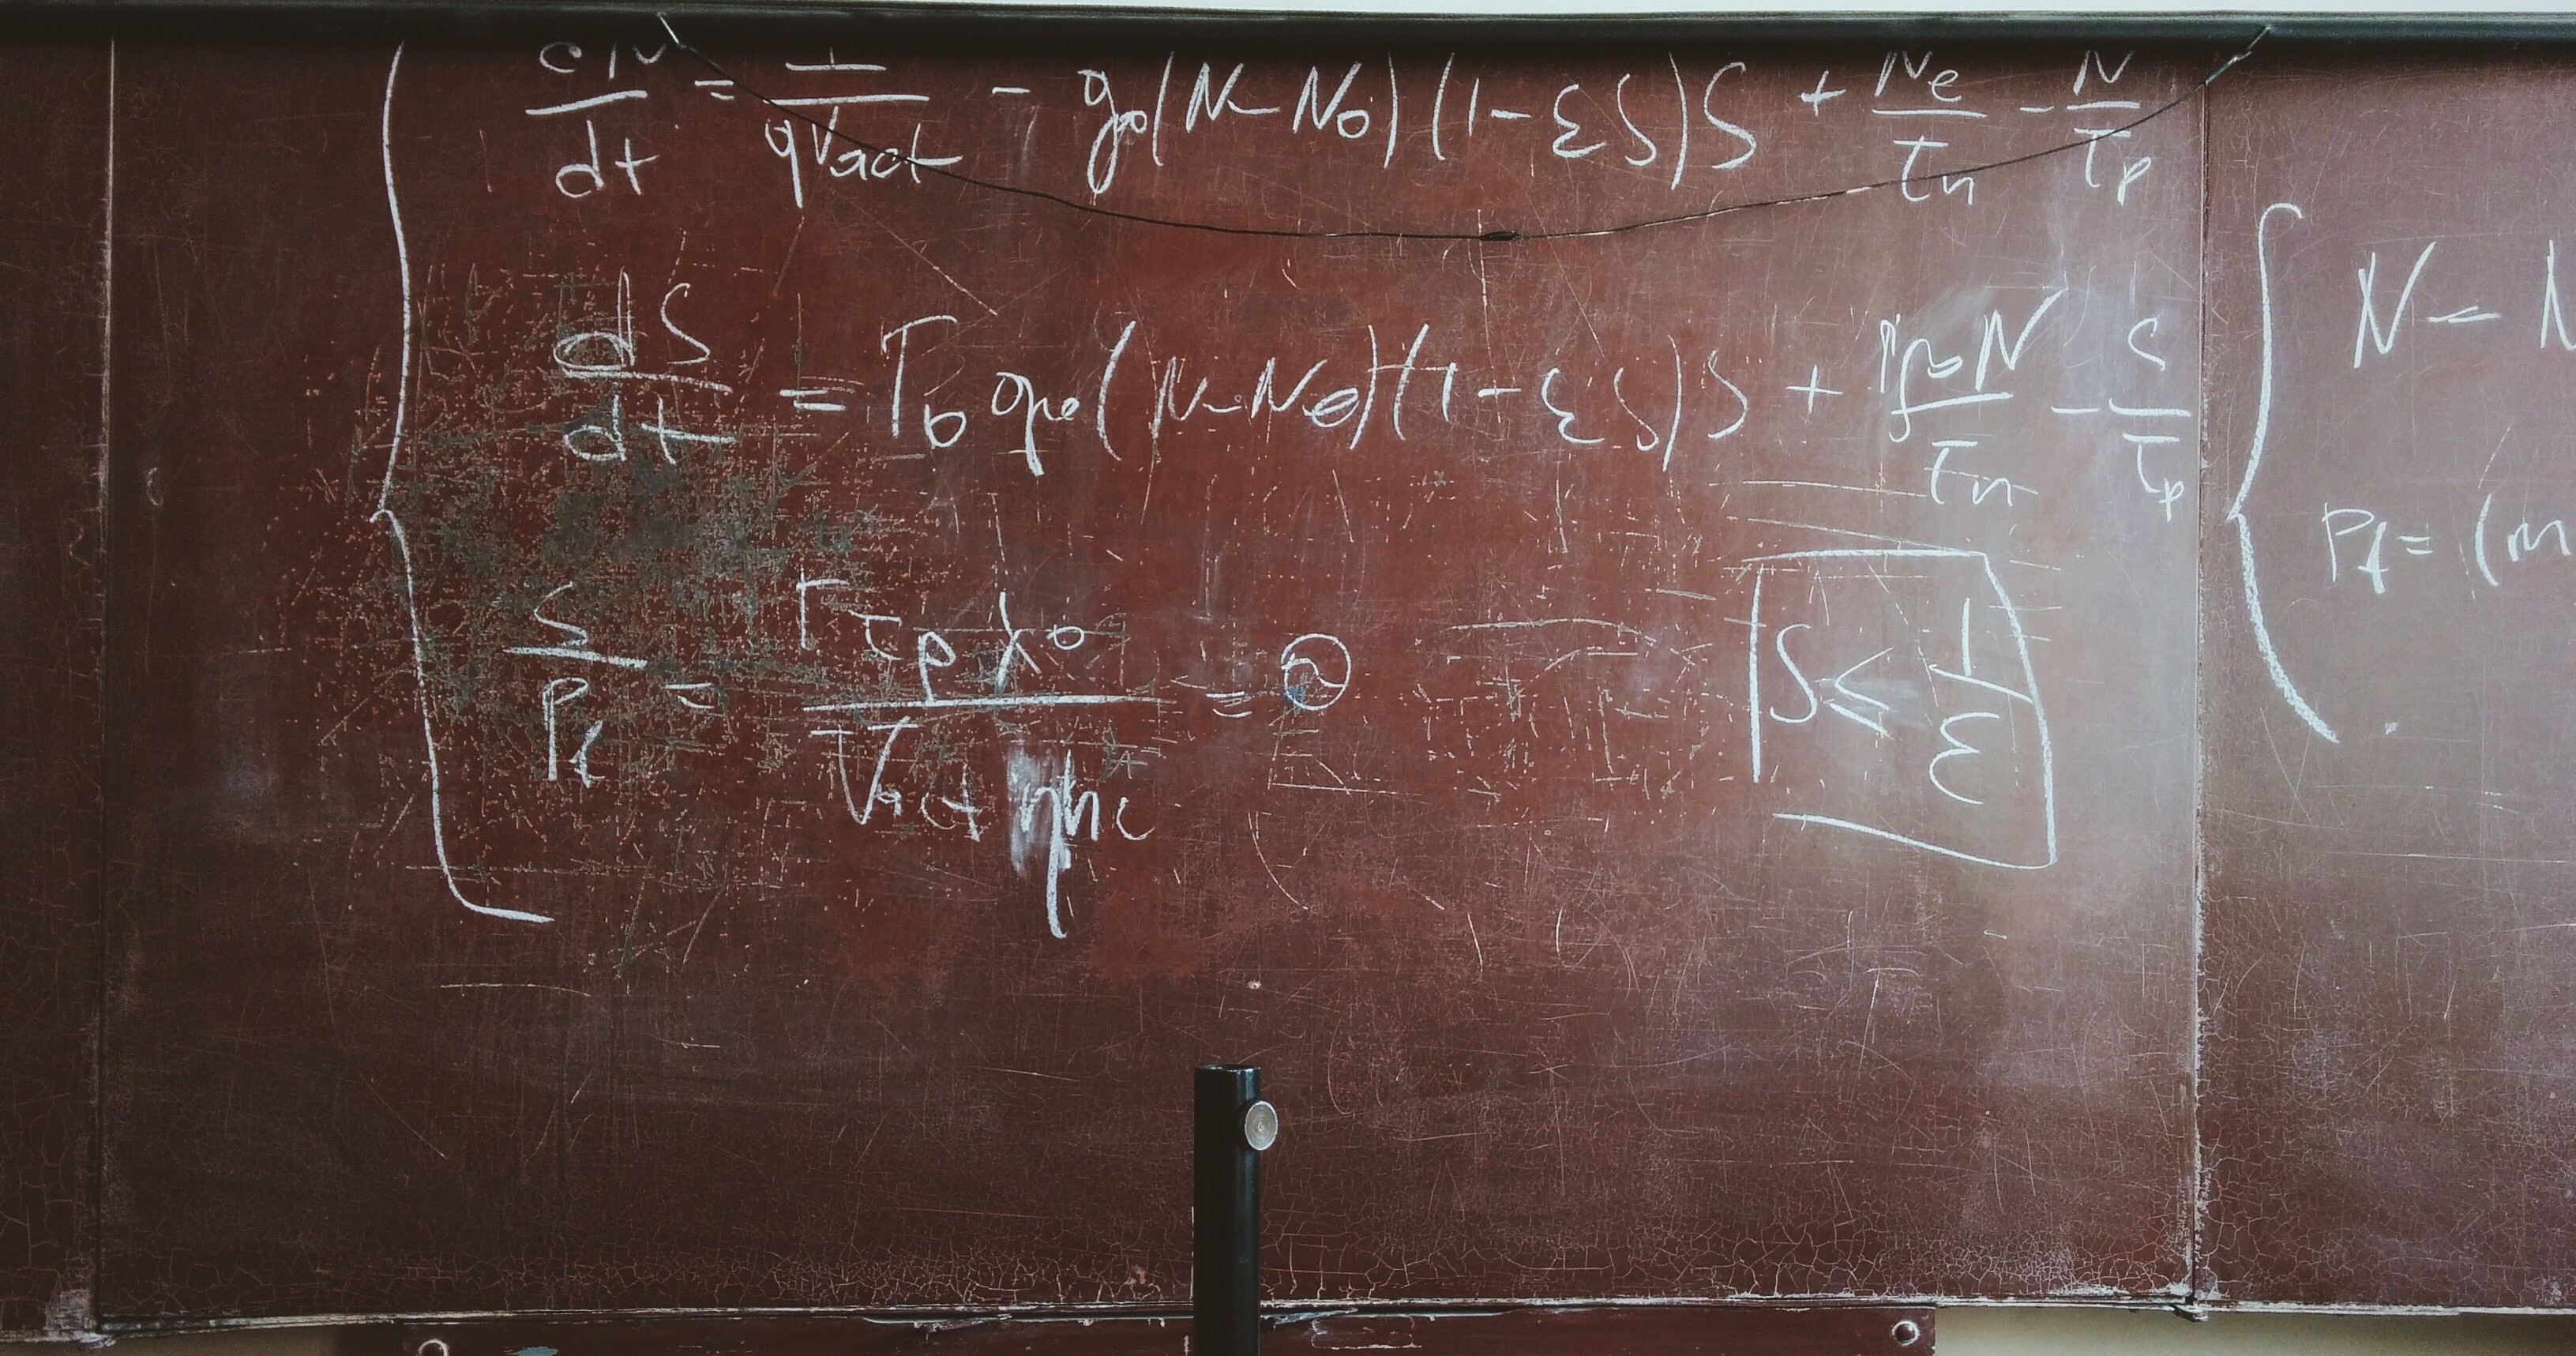 dN/dt = I/(qVact) - g0(N-N0)(1-εS)S + Ne/τn - N/τp
dS/dt = Γ0 g0(N-N0)(1-εS)S + Γβ0N/τn - S/τp
S/Pf = Γτpλ0/(Vact ηhc) =
S ≤ 1/ε
N = N
Pf = (m